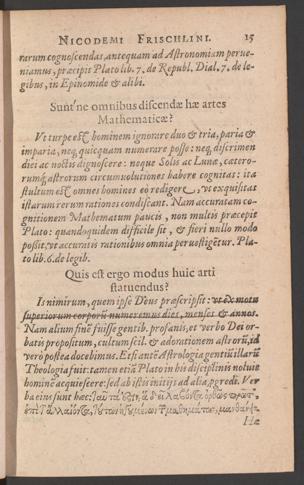 NICODEMI FRISCHLINI. 15
rarum cognoscendas, antequam ad Astronomiam perue-
niamus, præcipit Plato lib. 7. de Republ. Dial. 7. de le-
gibus, in Epinomide & alibi.
Sunt'ne omnibus discendæ hæ artes
Mathematicæ?
Vt turpe est hominem ignorare duo & tria, paria &
imparia, neq; quicquam numerare posse: neq; discrimen
diei ac noctis dignoscere: neque Solis ac Lunæ, cætero-
rumq; astrorum circumuolutiones habere cognitas: ita
stultum est omnes homines eò redigere, vt exquisitas
istarum rerum rationes condiscant. Nam accuratam co-
gnitionem Mathematum paucis, non multis præcepit
Plato: quandoquidem difficile sit, & fieri nullo modo
possit, vt accuratis rationibus omnia peruestigẽtur. Pla-
to lib. 6. de legib.
Quis est ergo modus huic arti
statuendus?
Is nimirum, quem ipse Deus præscripsit: vt ex motu
superiorum corporũ numeremus dies, menses & annos.
Nam alium finẽ fuisse gentib. profanis, et verbo Dei or-
batis propositum, cultum scil. & adorationem astrorũ, id
verò postea docebimus. Etsi autẽ Astrologia gentiũ illarũ
Theologia fuit: tamen etiã Plato in his disciplinis noluit
hominẽ acquiescere: sed ab istis initijs ad alia, pgredi. Ver
ba eius sunt hæc: ταῦτα δεῖ λαβόντα ὀρθῶς
μαθήματα, μανθάνειν.
Hæ